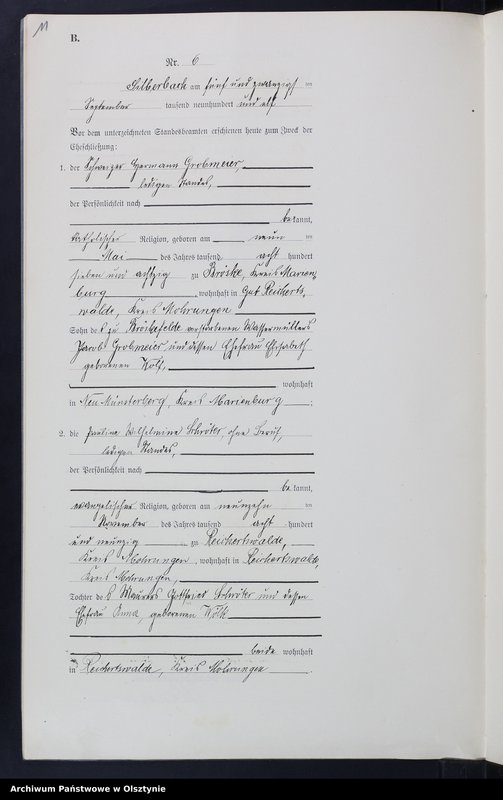 11
B.
Nr. 6
Silberbach am fünf und zwanzigsten
September tausend neunhundert und elf
Vor dem unterzeichneten Standesbeamten erschienen heute zum Zweck der
Eheschließung:
1. der Schweizer Hermann Grobmeier,
ledigen Standes,
der Persönlichkeit nach
bekannt,
katholischer Religion, geboren am neun ten
Mai des Jahres tausend acht hundert
sieben und achtzig zu Bröske, Kreis Marien
burg, wohnhaft in Gut Reicherts
walde, Kreis Mohrungen
Sohn des zu Bröskefelde verstorbenen Wassermüllers
Jacob Grobmeier, und dessen Ehefrau Elisabeth
geborenen
wohnhaft
in Neu Münsterberg, Kreis Marienburg ;
2. die Pauline Wilhelmine Schröter, ohne Beruf,
ledigen Standes,
der Persönlichkeit nach
bekannt,
evangelischer Religion, geboren am neunzehn ten
November des Jahres tausend acht hundert
und neunzig zu Reichertswalde,
Kreis Mohrungen, wohnhaft in Reichertswalde,
Kreis Mohrungen,
Tochter des Maurers Gottfried Schröter und dessen
Ehefrau Anna, geborenen Wölk
beide wohnhaft
in Reichertswalde, Kreis Mohrungen .
Archiwum Państwowe w Olsztynie